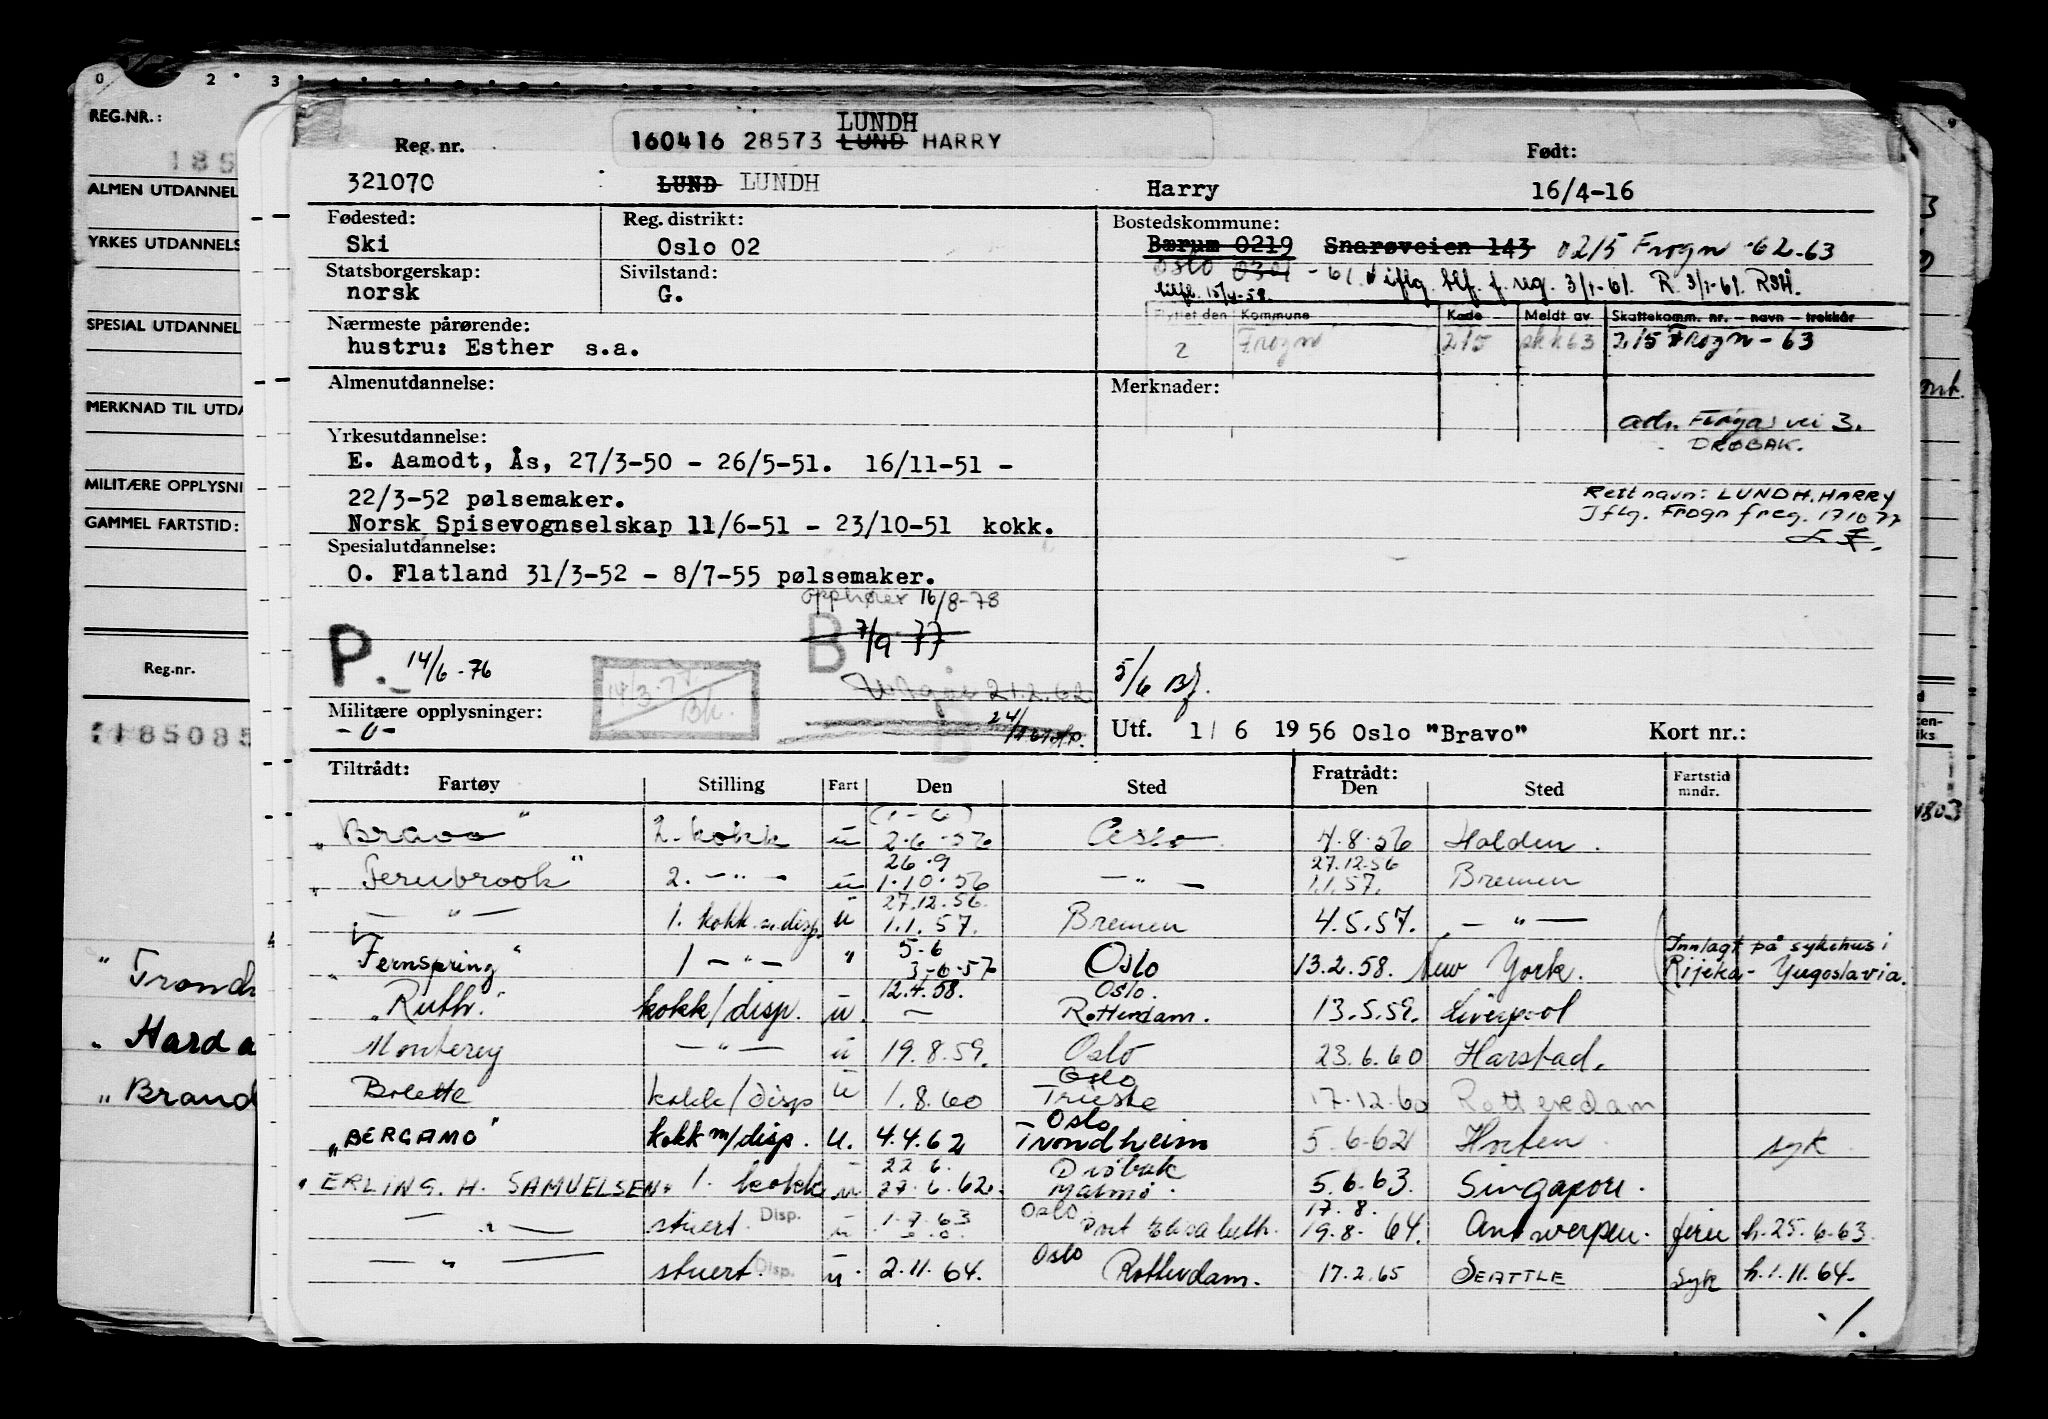 0 2 3
REG.NR.:
185
ALMEN UTDANNEL
YRKES UTDANNELS
SPECIAL UTDANNEL
MERKNAD TIL UTDA
MILITÆRE OPPLYSNI
GAMMEL FARTSTID:
Reg.nr.
185085
" Trondh
" Hard a
" Brand
LUNDH
Reg. nr. 160416 28573 LUND HARRY Født:
321070 LUND LUNDH Harry 16/4-16
Fødested: Reg. distrikt: Bostedskommune:
Ski Oslo 02 Bærum 0219 Snarøveien 143 0215 Frogn -62-63
Statsborgerskap: Sivilstand: Oslo 0301 - 61 iflg. blf. f. reg. 3/1-61. R. 3/1-61. RSH.
norsk G. 15/4-58.
Flyttet den Kommune Kode Meldt av Skattekomm. nr. — navn — trekkår
Nærmeste pårørende:
hustru: Esther s.a. 2 Frogn 215 skk63 215 Frogn - 63
Almenutdannelse: Merknader:
adr. vei 3.
DRØBAK.
Yrkesutdannelse:
E. Aamodt, Ås, 27/3-50 - 26/5-51. 16/11-51 -
22/3-52 pølsemaker.
Rett navn: LUNDH. HARRY
Norsk Spisevognselskap 11/6-51 - 23/10-51 kokk.
Iflg. Frogn freg. 171077
Spesialutdannelse:
O. Flatland 31/3-52 - 8/7-55 pølsemaker.
opphører 16/8-78
B 7/9 77
P. 14/6-76
14/3-78 Bk.
21.2.62
5/6 BJ.
Militære opplysninger:
- 0 -
24/
B
Utf. 1/6 1956 Oslo "Bravo" Kort nr.:
Tiltrådt: Fratrådt: Fartstid mndr.
Fartøy Stilling Fart Den Sted Den Sted
(1-6)
"Bravo" 2. kokk u 2.6.56 Oslo 4.8.56 Halden.
26.9 27.12.56
" Fernbrook" 2. — " — u 1.10.56 — " — 1.1.57. Bremen
27.12.56.
— " — 1. kokk m disp. u 1.1.57. Bremen 4.5.57. — " —
5-6
"Fernspring" 1 — " — " 3-6-57 Oslo 13.2.58. New York. (Innlagt på sykehus i Rijeka - Yugoslavia.
12.4.58. Oslo.
"Ruth." kokk/disp. u. — Rotterdam. 13.5.59. Liverpool
Monterey — " — u 19.8.59. Oslo 23.6.60 Harstad.
Oslo
Bolette kokk/disp u 1.8.60 Trieste 17.12.60 Rotterdam
Oslo
"BERGAMO" kokk m/disp. u. 4.4.62 Trondheim 5.6-62 Horten. syk
22 6. Drøbak
" ERLING. H. SAMUELSEN" 1. kokk u 27.6.62. Malmø. 5.6.63. Singapore.
Oslo 17.8.
— " — stuert. Disp. u 1.7.63 Port Elisabeth. 19.8.64. Antwerpen. ferie h.25.6.63.
Oslo
— " — stuert. Disp. u. 2.11.64. Rotterdam. 17.2.65 SEATTLE syk h.1.11.64.
1803